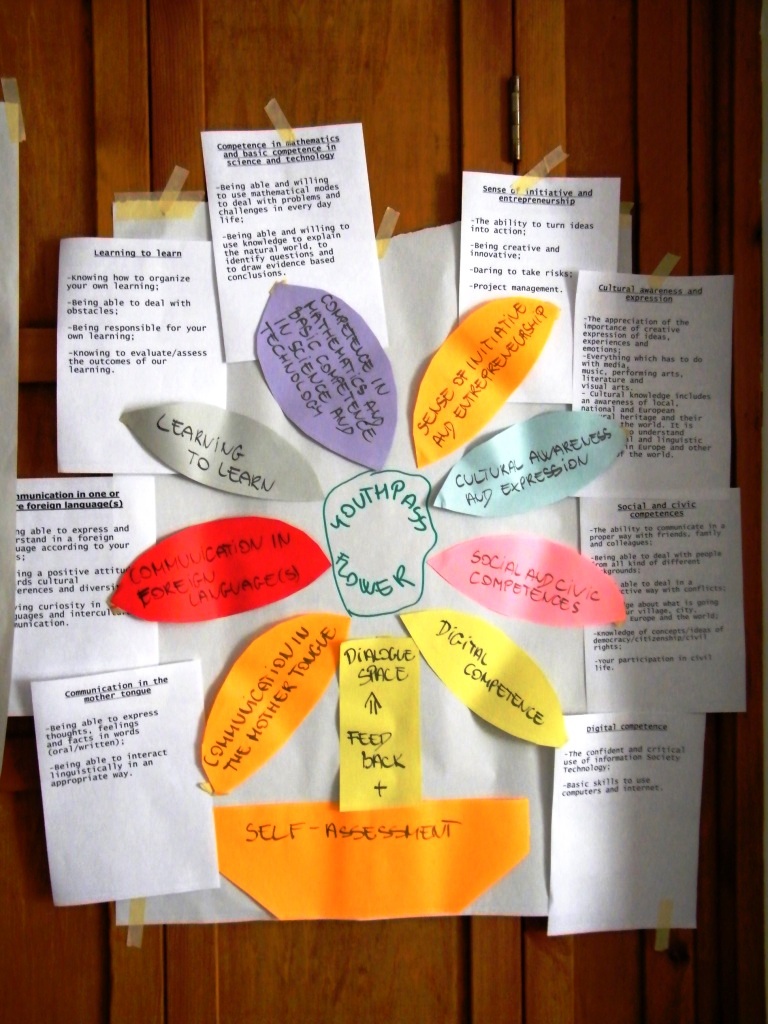 Competence in mathematics
and basic competence in
science and technology
-Being able and willing
to use mathematical modes
to deal with problems and
challenges in every day
life;
-Being able and willing to
use knowledge to explain
the natural world, to
identify questions and
to draw evidence based
conclusions.
Sense of initiative and
entrepreneurship
-The ability to turn ideas
into action;
-Being creative and
innovative;
-Daring to take risks;
-Project management.
Learning to learn
-Knowing how to organize
your own learning;
-Being able to deal with
obstacles;
-Being responsible for your
own learning;
-Knowing to evaluate/assess
the outcomes of our
learning.
Cultural awareness and
expression
-The appreciation of the
importance of creative
expression of ideas,
experiences and
emotions;
-Everything which has to do
with media,
music, performing arts,
literature and
visual arts.
- Cultural knowledge includes
an awareness of local,
national and European
heritage and their
the world. It is
understand
and linguistic
in Europe and other
of the world.
COMPETENCE IN
MATHEMATICS AND
BASIC COMPETENCE
IN SCIENCE AND
TECHNOLOGY
SENSE OF INITIATIVE
AND ENTREPRENEURSHIP
LEARNING
TO LEARN
CULTURAL AWARENESS
AND EXPRESSION
YOUTHPASS
FLOWER
COMMUNICATION IN
FOREIGN
LANGUAGE(S)
SOCIAL AND CIVIC
COMPETENCES
COMMUNICATION IN
THE MOTHER TONGUE
DIGITAL
COMPETENCE
DIALOGUE
SPACE
↑
FEED
BACK
+
SELF-ASSESSMENT
munication in one or
language(s)
able to express and
in a foreign
according to your
a positive
cultural
and
curiosity in
and
Social and civic
competences
-The ability to communicate in a
proper way with friends, family
and colleagues;
-Being able to deal with people
from all kind of different
-Being able to deal in a
way with conflicts;
about what is going
village, city,
Europe and the world;
-Knowledge of concepts/ideas of
democracy/citizenship/civil
rights;
-Your participation in civil
life.
Communication in the
mother tongue
-Being able to express
thoughts, feelings
and facts in words
(oral/written);
-Being able to interact
linguistically in an
appropriate way.
Digital competence
-The confident and critical
use of information Society
Technology;
-Basic skills to use
computers and internet.